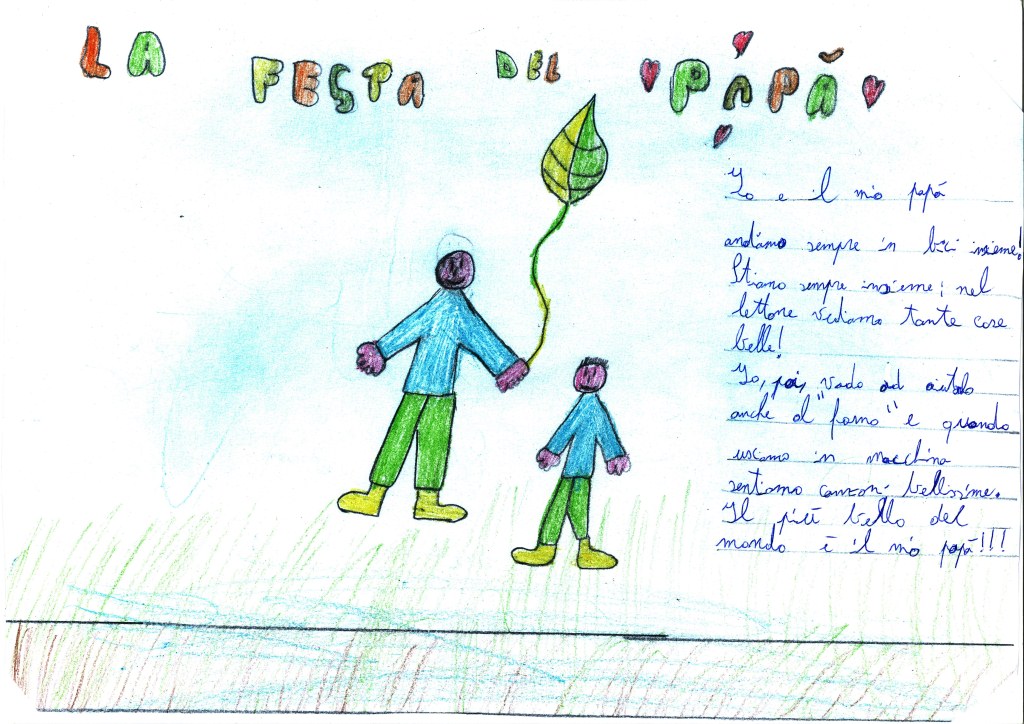 LA FESTA DEL PAPÀ
Io e il mio papà
andiamo sempre in bici insieme!
Stiamo sempre insieme; nel
lettone vediamo tante cose
belle!
Io, poi, vado ad aiutalo
anche al "forno" e quando
usciamo in macchina
sentiamo canzoni bellssime.
Il più bello del
mondo è il mio papà!!!